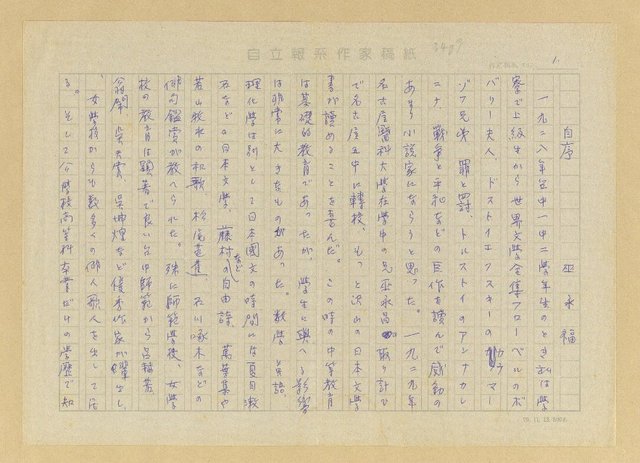 自立報系作家稿紙
3489
1.
自序 巫永福
一九二八年台中一中二學年生のとき私は學
寮で上級生から世界文學全集フローベルのボ
バリー夫人、ドストイエフスキーのカラマー
ゾフ兄弟、罪と罰、トルストイのアンナカレ
ニナ、戦争と平和などの巨作を讀んで感動の
あまり小説家にならうと思った。一九二九年
名古屋醫科大學在學中の兄巫永昌の取り計で
で名古屋五中に轉校、もっと沢山の日本文學
書が讀めることを喜んだ。この時の中等教育
は基礎的教育であったが、學生に與へる影響
は非常に大きなものがあった。数學、英語、
理化學は別として日本國文の時間には夏目漱
石などの日本文學、藤村などの自由詩、萬葉集や
若山牧水の和歌、松尾芭蕉、石川啄木などの
俳句鑑賞が教へられた。殊に師範學校、女學
校の教育は顕著で良い台中師範から呂赫若、
翁鬧、吳天賞、吳坤煌など優秀作家が輩出し、
女學校からも数多くの俳人歌人を出して居
る。そして公學校高等科卒業だけの學歴で知